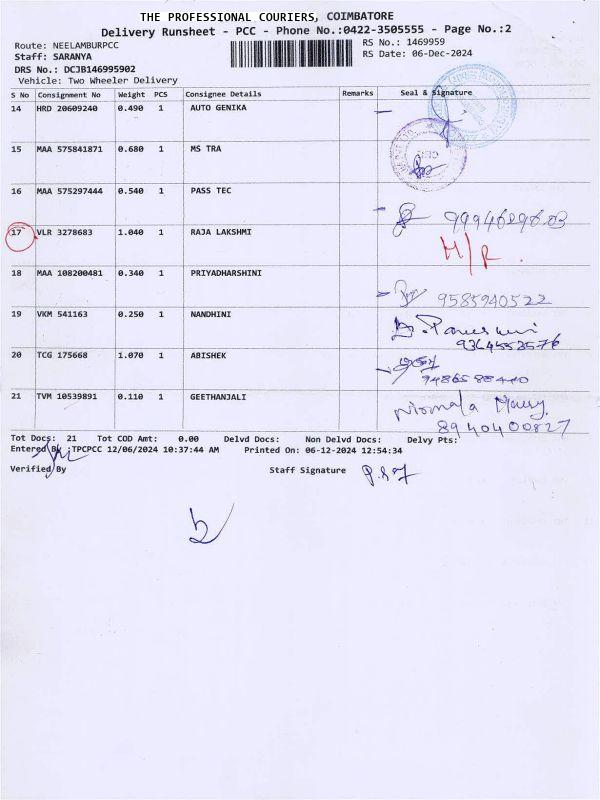 THE PROFESSIONAL COURIERS, COIMBATORE
Delivery Runsheet - PCC - Phone No.:0422-3505555 - Page No.:2
Route: NEELAMBURPCC
RS No.: 1469959
Staff: SARANYA
RS Date: 06-Dec-2024
DRS No.: DCJB146995902
Vehicle: Two Wheeler Delivery
S No Consignment No Weight PCS Consignee Details Remarks Seal & Signature
14 HRD 20609240 0.490 1 AUTO GENIKA
15 MAA 575841871 0.680 1 MS TRA
16 MAA 575297444 0.540 1 PASS TEC
17 VLR 3278683 1.040 1 RAJA LAKSHMI
H/R.
18 MAA 108200481 0.340 1 PRIYADHARSHINI
9585940522
19 VKM 541163 0.250 1 NANDHINI
20 TCG 175668 1.070 1 ABISHEK
21 TVM 10539891 0.110 1 GEETHANJALI
8940400827
Tot Docs: 21 Tot COD Amt: 0.00 Delvd Docs: Non Delvd Docs: Delvy Pts:
Entered By :TPCPCC 12/06/2024 10:37:44 AM Printed On: 06-12-2024 12:54:34
Verified By Staff Signature